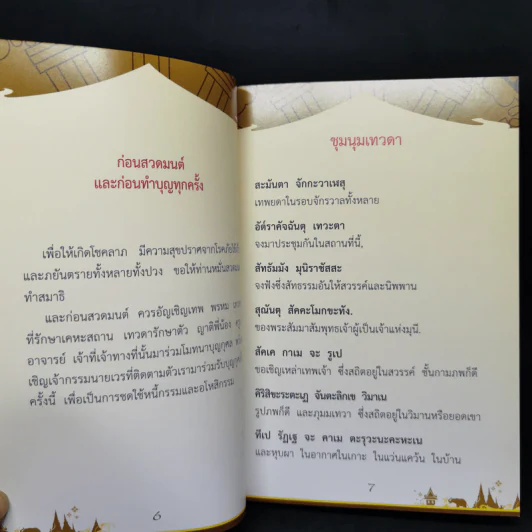 ก่อนสวดมนต์
และก่อนทำบุญทุกครั้ง
เพื่อให้เกิดโชคลาภ มีความสุขปราศจากโรคภัย
และภยันตรายทั้งหลายทั้งปวง ขอให้ท่านหมั่นสวดมนต์
ทำสมาธิ
และก่อนสวดมนต์ ควรอัญเชิญเทพ พรหม
ที่รักษาเคหะสถาน เทวดารักษาตัว ญาติพี่น้อง
อาจารย์ เจ้าที่เจ้าทางที่นั้นมาร่วมโมทนาบุญกุศล
เชิญเจ้ากรรมนายเวรที่ติดตามตัวเรามาร่วมรับบุญกุศล
ครั้งนี้ เพื่อเป็นการชดใช้หนี้กรรมและอโหสิกรรม
6
ชุมนุมเทวดา
สะมันตา จักกะวาเฬสุ
เทพยดาในรอบจักรวาลทั้งหลาย
อัต์ราคัจฉันตุ เทวะตา
จงมาประชุมกันในสถานที่นี้,
สัทธัมมัง มุนิราชัสสะ
จงฟังซึ่งสัทธรรมอันให้สวรรค์และนิพพาน
สุณันตุ สัคคะโมกขะทัง.
ของพระสัมมาสัมพุทธเจ้าผู้เป็นเจ้าแห่งมุนี.
สัคเค กาเม จะ รูเป
ขอเชิญเหล่าเทพเจ้า ซึ่งสถิตอยู่ในสวรรค์ ชั้นกามภพก็ดี
คิริสิขะระตะเฏ จันตะลิกเข วิมาเน
รูปภพก็ดี และภุมมเทวา ซึ่งสถิตอยู่ในวิมานหรือยอดเขา
ทีเป รัฏเฐ จะ คาเม ตะรุวะนะคะหะเน
และหุบผา ในอากาศในเกาะ ในแว่นแคว้น ในบ้าน
7